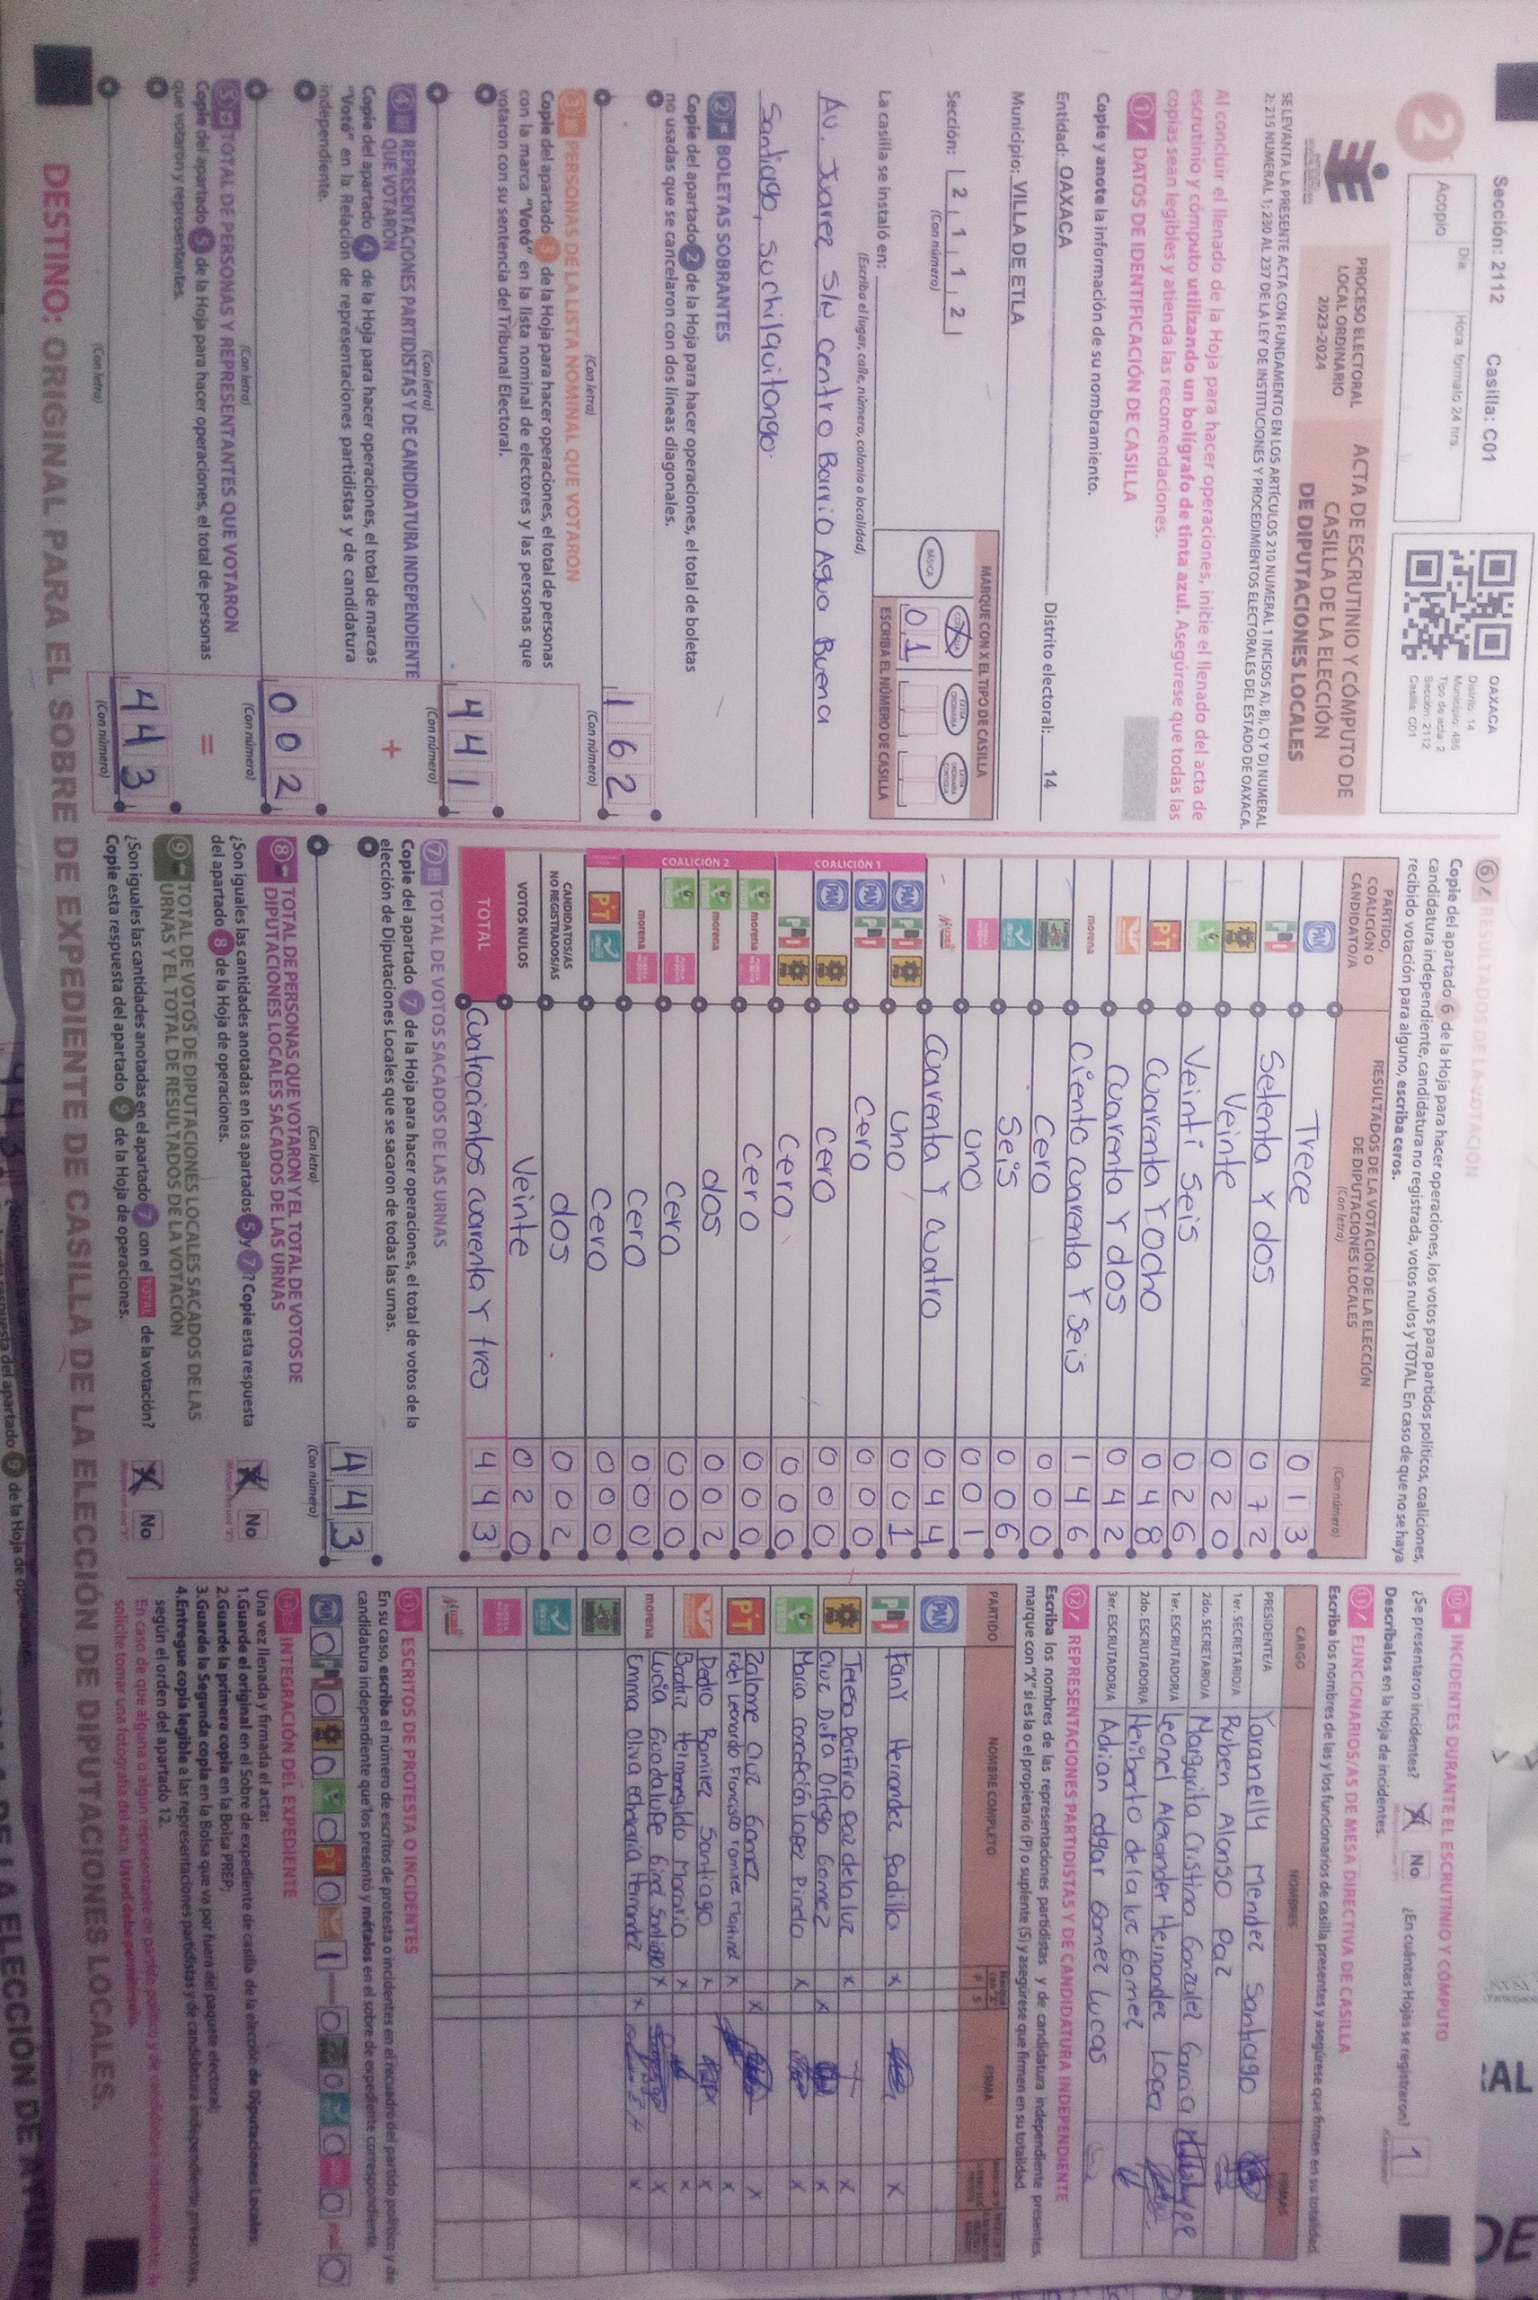 Sección: 2112 Casilla: C01
2
Día Hora: formato 24 hrs.
Acopio
OAXACA
Distrito: 14
Municipio: 485
Tipo de acta: 2
Sección: 2112
Casilla: C01
PROCESO ELECTORAL
LOCAL ORDINARIO
2023-2024
ACTA DE ESCRUTINIO Y CÓMPUTO DE
CASILLA DE LA ELECCIÓN
DE DIPUTACIONES LOCALES
SE LEVANTA LA PRESENTE ACTA CON FUNDAMENTO EN LOS ARTÍCULOS 210 NUMERAL 1 INCISOS A), B), C) Y D) NUMERAL
2; 215 NUMERAL 1; 230 AL 237 DE LA LEY DE INSTITUCIONES Y PROCEDIMIENTOS ELECTORALES DEL ESTADO DE OAXACA.
Al concluir el llenado de la Hoja para hacer operaciones, inicie el llenado del acta de
escrutinio y cómputo utilizando un bolígrafo de tinta azul. Asegúrese que todas las
copias sean legibles y atienda las recomendaciones.
1 DATOS DE IDENTIFICACIÓN DE CASILLA
Copie y anote la información de su nombramiento.
Entidad: OAXACA Distrito electoral: 14
Municipio: VILLA DE ETLA
Sección: 2 1 1 2
(Con número)
MARQUE CON X EL TIPO DE CASILLA
BÁSICA
0 1
ESCRIBA EL NÚMERO DE CASILLA
La casilla se instaló en:
(Escriba el lugar, calle, número, colonia o localidad)
Av. Juarez S/N centro Barrio Agua Buena
Santiago, Suchilquitongo.
2 BOLETAS SOBRANTES
Copie del apartado 2 de la Hoja para hacer operaciones, el total de boletas
no usadas que se cancelaron con dos líneas diagonales.
162
(Con letra) (Con número)
3 PERSONAS DE LA LISTA NOMINAL QUE VOTARON
Copie del apartado 3 de la Hoja para hacer operaciones, el total de personas
con la marca "Votó" en la lista nominal de electores y las personas que
votaron con su sentencia del Tribunal Electoral.
441
(Con letra) (Con número)
4 REPRESENTACIONES PARTIDISTAS Y DE CANDIDATURA INDEPENDIENTE
QUE VOTARON
Copie del apartado 4 de la Hoja para hacer operaciones, el total de marcas
"Votó" en la Relación de representaciones partidistas y de candidatura
independiente.
+
002
(Con letra) (Con número)
5 TOTAL DE PERSONAS Y REPRESENTANTES QUE VOTARON
Copie del apartado 5 de la Hoja para hacer operaciones, el total de personas
que votaron y representantes.
=
443
(Con letra) (Con número)
6 RESULTADOS DE LA VOTACIÓN
Copie del apartado 6 de la Hoja para hacer operaciones, los votos para partidos políticos, coaliciones,
candidatura independiente, candidatura no registrada, votos nulos y TOTAL. En caso de que no se haya
recibido votación para alguno, escriba ceros.
PARTIDO,
COALICIÓN O
CANDIDATO/A
RESULTADOS DE LA VOTACIÓN DE LA ELECCIÓN
DE DIPUTACIONES LOCALES
(Con letra) (Con número)
PAN Trece 013
PRI Setenta y dos 072
Veinte 020
Veinti seis 026
PT Cuarenta y ocho 048
Cuarenta y dos 042
morena Ciento cuarenta y seis 146
Cero 000
Seis 006
uno 001
Cuarenta y cuatro 044
COALICIÓN 1
PAN PRI uno 001
PAN PRI Cero 000
PAN Cero 000
PRI Cero 000
COALICIÓN 2
morena Cero 000
morena dos 002
Cero 000
morena Cero 000
PT Cero 000
CANDIDATOS/AS
NO REGISTRADOS/AS dos 002
VOTOS NULOS Veinte 020
TOTAL Cuatrocientos cuarenta y tres 443
7 TOTAL DE VOTOS SACADOS DE LAS URNAS
Copie del apartado 7 de la Hoja para hacer operaciones, el total de votos de la
elección de Diputaciones Locales que se sacaron de todas las urnas.
443
(Con letra) (Con número)
8 TOTAL DE PERSONAS QUE VOTARON Y EL TOTAL DE VOTOS DE
DIPUTACIONES LOCALES SACADOS DE LAS URNAS
¿Son iguales las cantidades anotadas en los apartados 5 y 7? Copie esta respuesta
del apartado 8 de la Hoja de operaciones.
X No
9 TOTAL DE VOTOS DE DIPUTACIONES LOCALES SACADOS DE LAS
URNAS Y EL TOTAL DE RESULTADOS DE LA VOTACIÓN
¿Son iguales las cantidades anotadas en el apartado 7 con el TOTAL de la votación?
Copie esta respuesta del apartado 9 de la Hoja de operaciones.
X No
10 INCIDENTES DURANTE EL ESCRUTINIO Y CÓMPUTO
¿Se presentaron incidentes? X No ¿En cuántas Hojas se registraron? 1
Descríbalos en la Hoja de incidentes.
11 FUNCIONARIOS/AS DE MESA DIRECTIVA DE CASILLA
Escriba los nombres de las y los funcionarios de casilla presentes y asegúrese que firmen en su totalidad.
CARGO NOMBRES FIRMAS
PRESIDENTE/A Yaranelly Mendez Santiago
1er. SECRETARIO/A Ruben Alonso Paz
2do. SECRETARIO/A Margarita Cristina Gonzalez Garcia
1er. ESCRUTADOR/A Leonel Alexander Hernandez Lopez
2do. ESCRUTADOR/A Heriberto de la luz Gomez
3er. ESCRUTADOR/A Adrian edgar Gomez Lucas
12 REPRESENTACIONES PARTIDISTAS Y DE CANDIDATURA INDEPENDIENTE
Escriba los nombres de las representaciones partidistas y de candidatura independiente presentes,
marque con "X" si es la o el propietario (P) o suplente (S) y asegúrese que firmen en su totalidad.
PARTIDO NOMBRE COMPLETO P S FIRMA
PAN
PRI Fany Hernandez Padilla X X
Teresa Porfirio Paz de la luz X X
Cruz Delfa Ortega Gomez X X
Maria Concepción Lopez Pinelo X X
PT Zalome Cruz Gomez X X
Fidel Leonardo Francisco ramirez Martinez X X
Delio Ramirez Santiago X X
Beatriz Hermenegildo Macario X X
morena Lucia Guadalupe Giron Santiago X X
Emma Oliva echeverria Hernandez X X
13 ESCRITOS DE PROTESTA O INCIDENTES
En su caso, escriba el número de escritos de protesta o incidentes en el recuadro del partido político y de
candidatura independiente que los presentó y métalos en el sobre de expediente correspondiente.
14 INTEGRACIÓN DEL EXPEDIENTE
Una vez llenada y firmada el acta:
1.Guarde el original en el Sobre de expediente de casilla de la elección de Diputaciones Locales;
2.Guarde la primera copia en la Bolsa PREP;
3.Guarde la Segunda copia en la Bolsa que va por fuera del paquete electoral;
4.Entregue copia legible a las representaciones partidistas y de candidatura independiente presentes,
según el orden del apartado 12.
En caso de que alguna o algún representante de partido político y de candidatura independiente, le
solicite tomar una fotografía del acta, Usted debe permitirlo.
DESTINO: ORIGINAL PARA EL SOBRE DE EXPEDIENTE DE CASILLA DE LA ELECCIÓN DE DIPUTACIONES LOCALES.